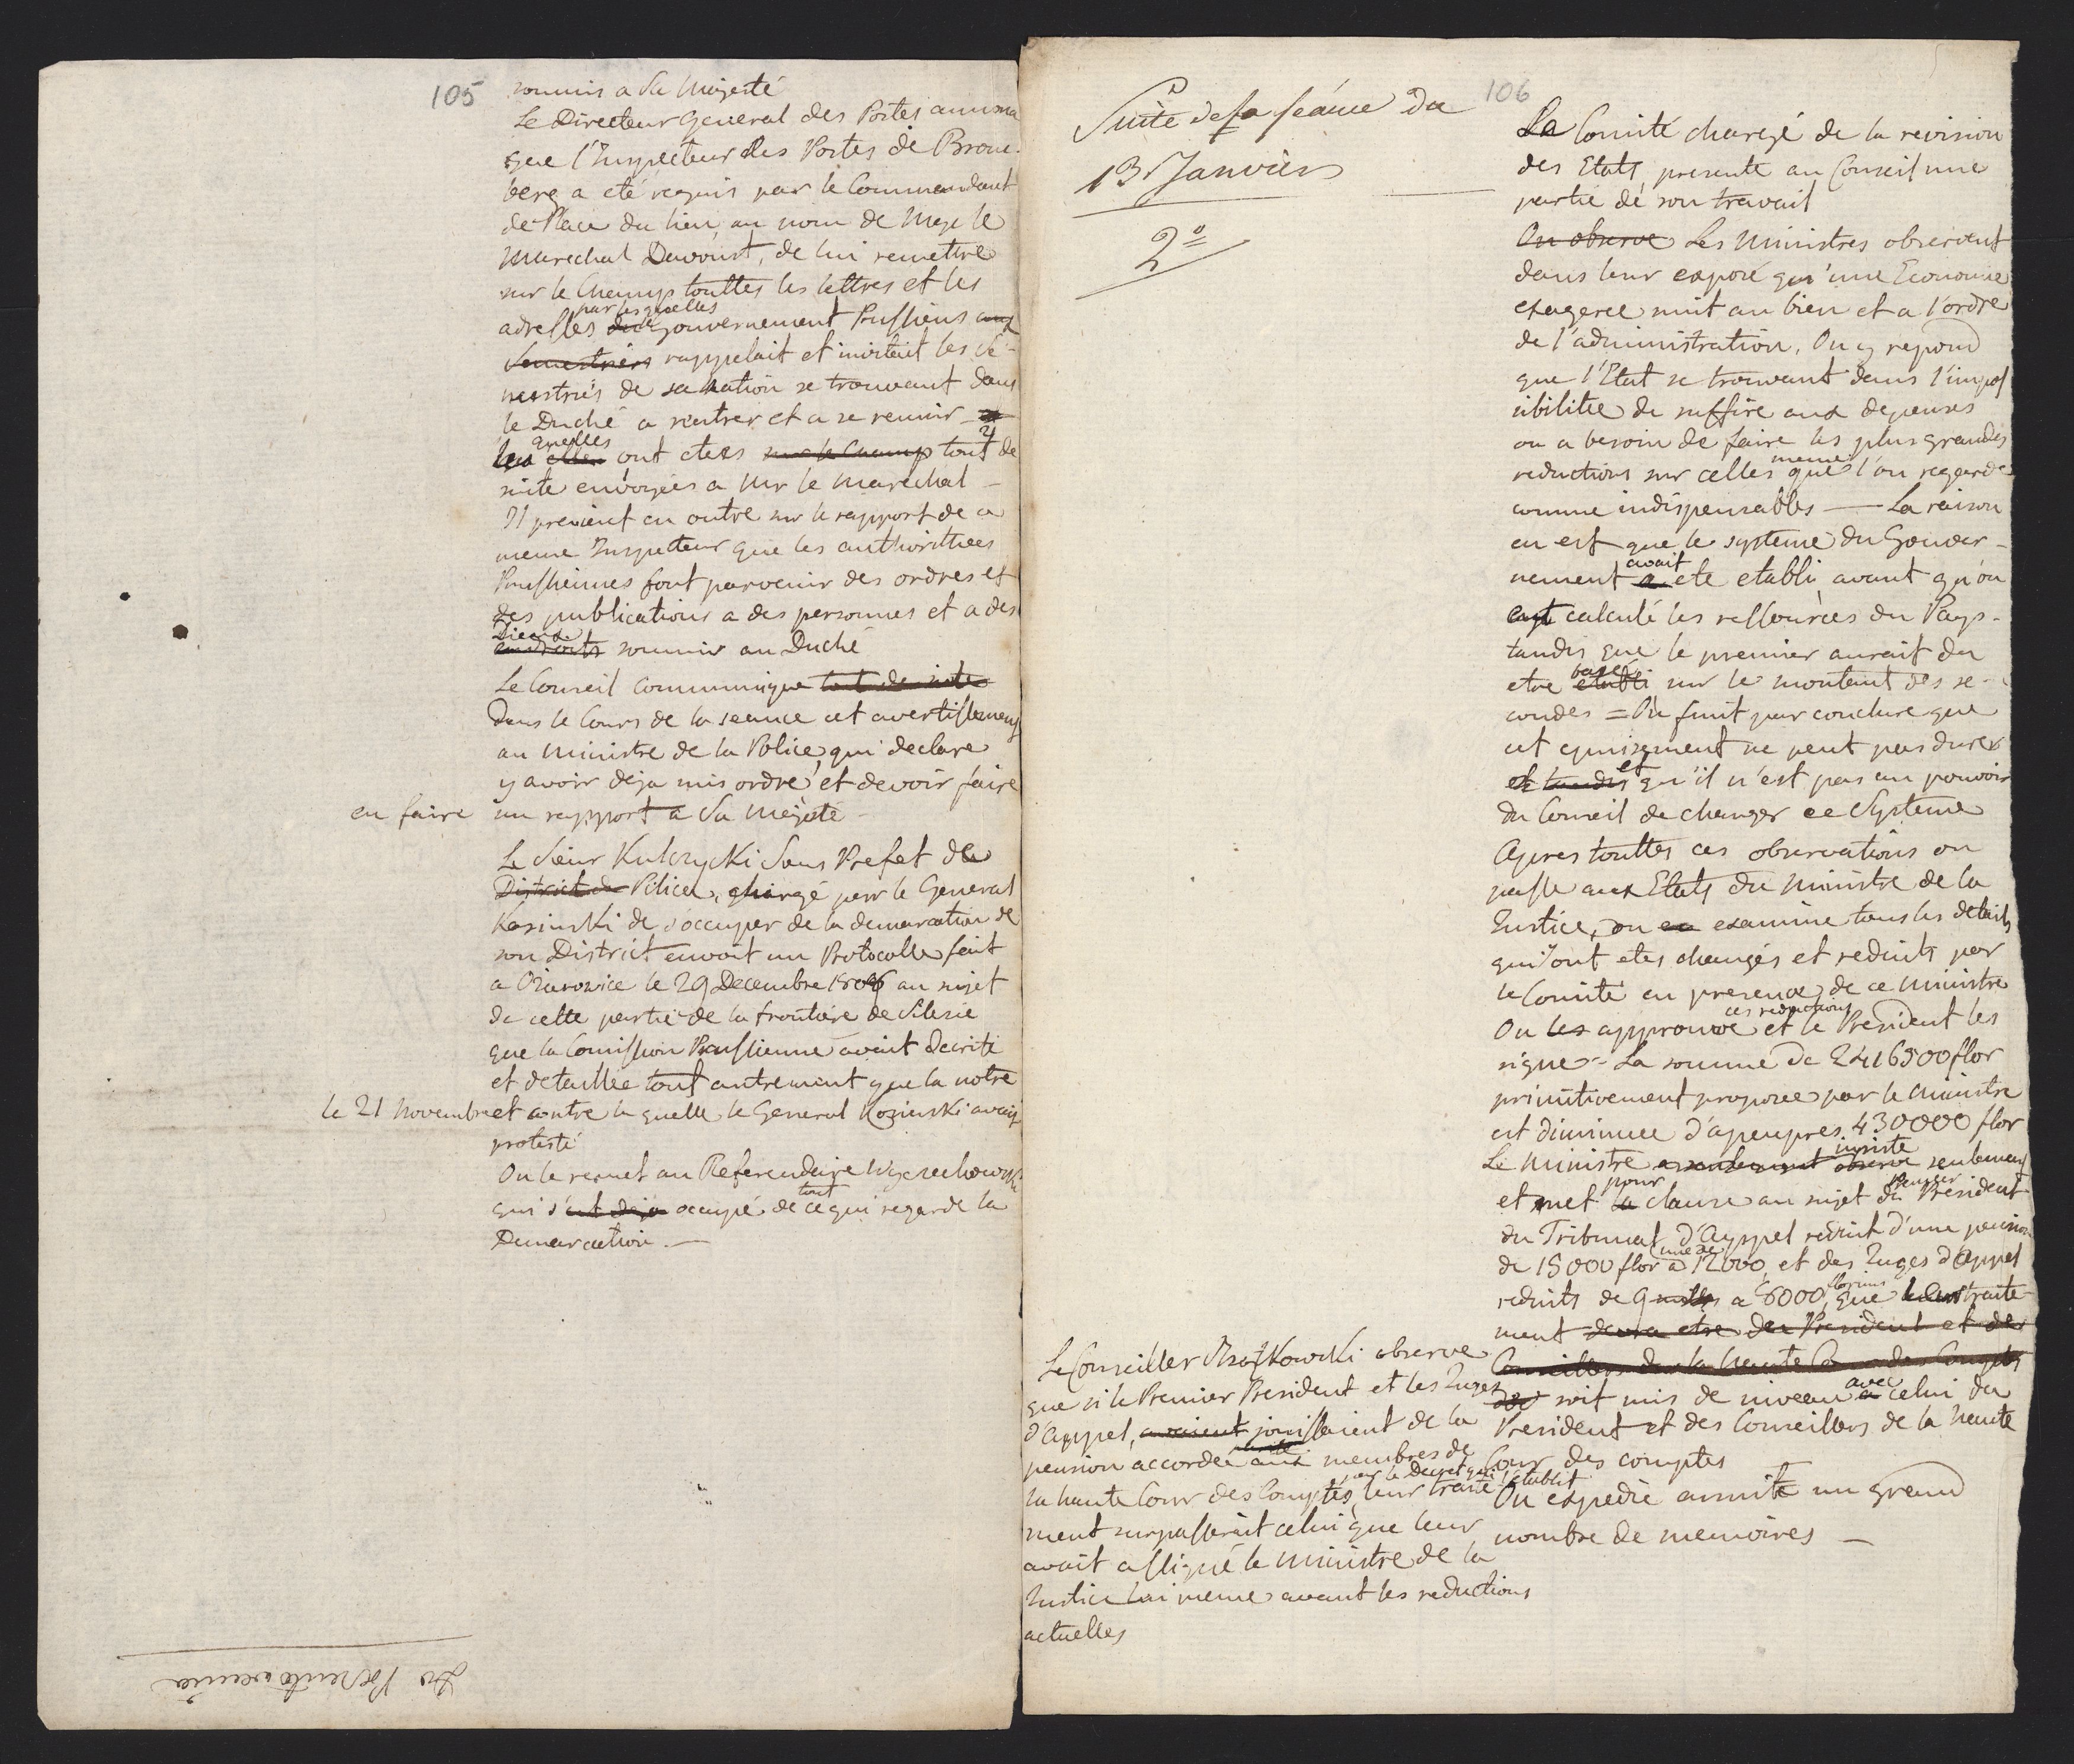 105
soumis a Sa Majesté
Le Directeur General des Postes annonce
que l'Inspecteur des Postes de Brom-
berg a eté requis par le Commandant
de Place du lieu, au nom de Mgr le
Marechal Davoust, de lui remettre
sur le Champ touttes les lettres et les
adresses du par lesquelles le Gouvernement Prussiens aux
Semestriers rappelait et invitait les Se-
mestriés de sa nation se trouvant dans
le Duché a rentrer et a se reunir
les quelles ont etees sur le Champ tout de
suite envoyées a Mr le Marechal —
Il previent en outre sur le rapport de ce
meme Inspecteur que les authorithées
Prussiennes font parvenir des ordres et
des publications a des personnes et a des
endroits Lieux soumis au Duché
Le Conseil communique tout de suite
dans le Cours de la seance cet avertissement
au Ministre de la Police, qui declare
y avoir deja mis ordre, et devoir faire
en faire un rapport a Sa Majeste -
Le Sieur Kulczycki Sous Prefet de
District de Pilica, chargé par le General
Kosinski de s'occuper de la demarcation de
son District envoit un Protocolle fait
a Ożarowice le 29 Decembre 1806 au sujet
de cette partie de la frontière de Silesie
que la Comission Prussienne avait decrite
et detaillée tout autrement que la notre
le 21 Novembre et contre la quelle le General Kosinski avait
protesté
On le remet au Referendaire Węgrzechowski
qui s'est deja occupé de tout ce qui regarde la
Demarcation. —
106
Suite de la seance du
13 Janvier
2º
La Comité chargé de la revision
des Etats, presente au Conseil une
partie de son travail
On observe Les Ministres observent
dans leur exposé qu'une Economie
exageree nuit au bien et a l'ordre
de l'administration. On y repond
que l'Etat se trouvant dans l'impos
sibilitée de suffire aux depenses
on a besoin de faire les plus grandes
reductions sur celles meme que l'on regarde
comme indispensables — La raison
en est que le systeme du Gouver-
nement a avait ete etabli avant qu'on
eut calculé les ressources du Pays-
tandis que le premier aurait du
etre etabli basé sur le montant des se-
condes = On finit par conclure que
cet epuisement ne peut pas durer
et tandis et qu'il n'est pas au pouvoir
du Conseil de changer ce Systeme
Apres touttes ces observations on
passe aux Etats du Ministre de la
Justice, on en examine tous les details
qui ont etes changés et reduits par
le Comité en presence de ce Ministre
On les approuve ces reductions et le President les
signe - La somme de 2416500 flor
primitivement proposee par le Ministre
est diminuee d'apeupres 430000 flor
Le Ministre observe insiste seulement
et met la pour clause au sujet du Premier President
du Tribunal d'Appel reduit d'une pension
de 15000 flor a une de 12000, et des Juges d'Appel
reduits de 9 mille a 6000 florins, que leur traite-
ment devra etre du President et des
Conseillers de la Haute Cour des Comptes
soit mis de niveau a avec celui du
President et des Conseillers de la Haute
Cour des comptes
On expedie ensuite un grand
nombre de memoires —
Le Conseiller observe
que si le Premier President et les Juges
d'Appel, avaient jouissaient de la
pension accordée aux membres de
la haute Cour des Comptes, par le decret qui l'etablit leur traite-
ment surpasserait celui que leur
avait assigné le Ministre de la
Justice lui meme avant les reductions
actuelles